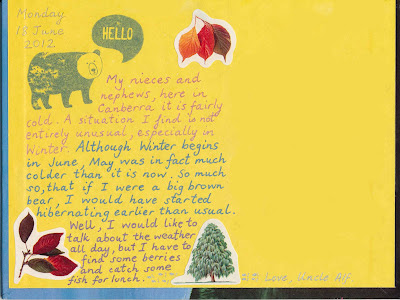 Monday
18 June
2012
HELLO
My nieces and
nephews, here in
Canberra it is fairly
cold. A situation I find is not
entirely unusual, especially in
Winter. Although Winter begins
in June, May was in fact much
colder than it is now. So much
so, that if I were a big brown
bear, I would have started
hibernating earlier than usual.
Well, I would like to
talk about the weather
all day, but I have to
find some berries
and catch some
fish for lunch.
Love, Uncle Alf.